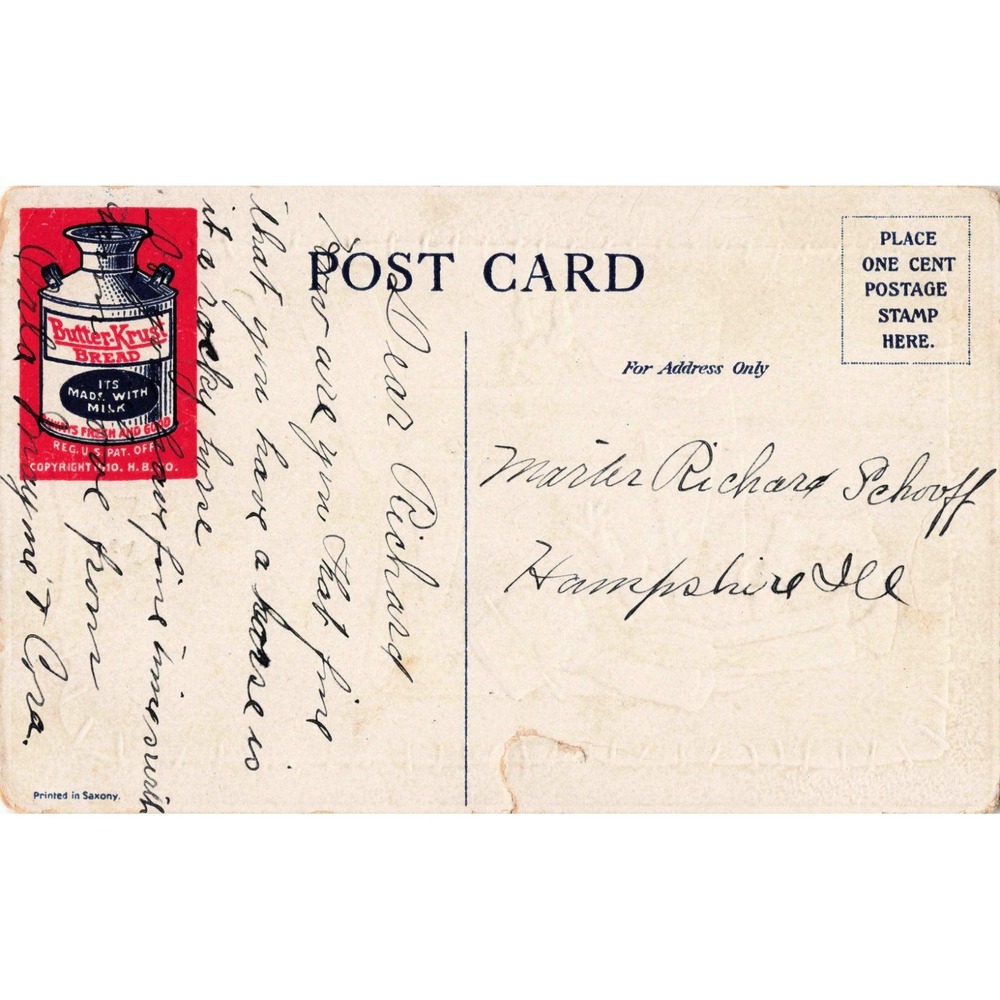 POST CARD
PLACE
ONE CENT
POSTAGE
STAMP
HERE.
For Address Only
Butter-Krust
BREAD
ITS
MADE WITH
MILK
ALWAYS FRESH AND GOOD
REG. U.S. PAT. OFF.
COPYRIGHT 1910. H.B.CO.
Dear Richard
How are you that fine
that you have a horse is
it a rocky horse
have fine times with
love from
and Cora.
Master Richard Schooff
Hampshire Ill
Printed in Saxony.